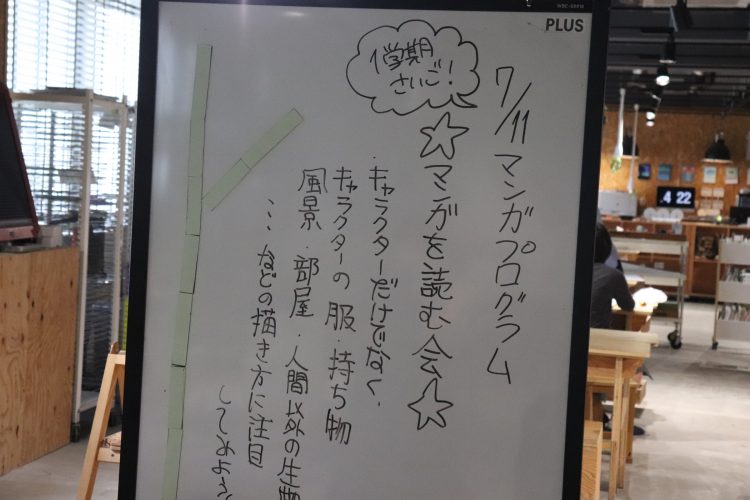 7/11 マンガプログラム
1学期
さいご!
☆マンガを読む会☆
・キャラクターだけでなく、
キャラクターの服・持ち物
風景・部屋・人間以外の生物
…などの描き方に注目
してみよう
PLUS
4 22